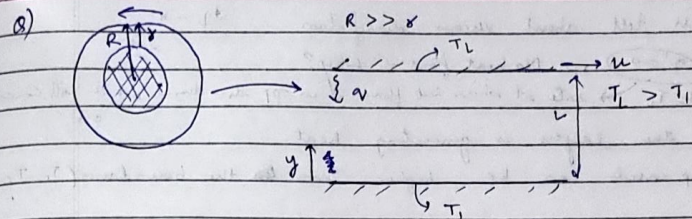 Q)
R γ
R >> γ
T_L
u
q
T_L > T_1
L
y
T_1